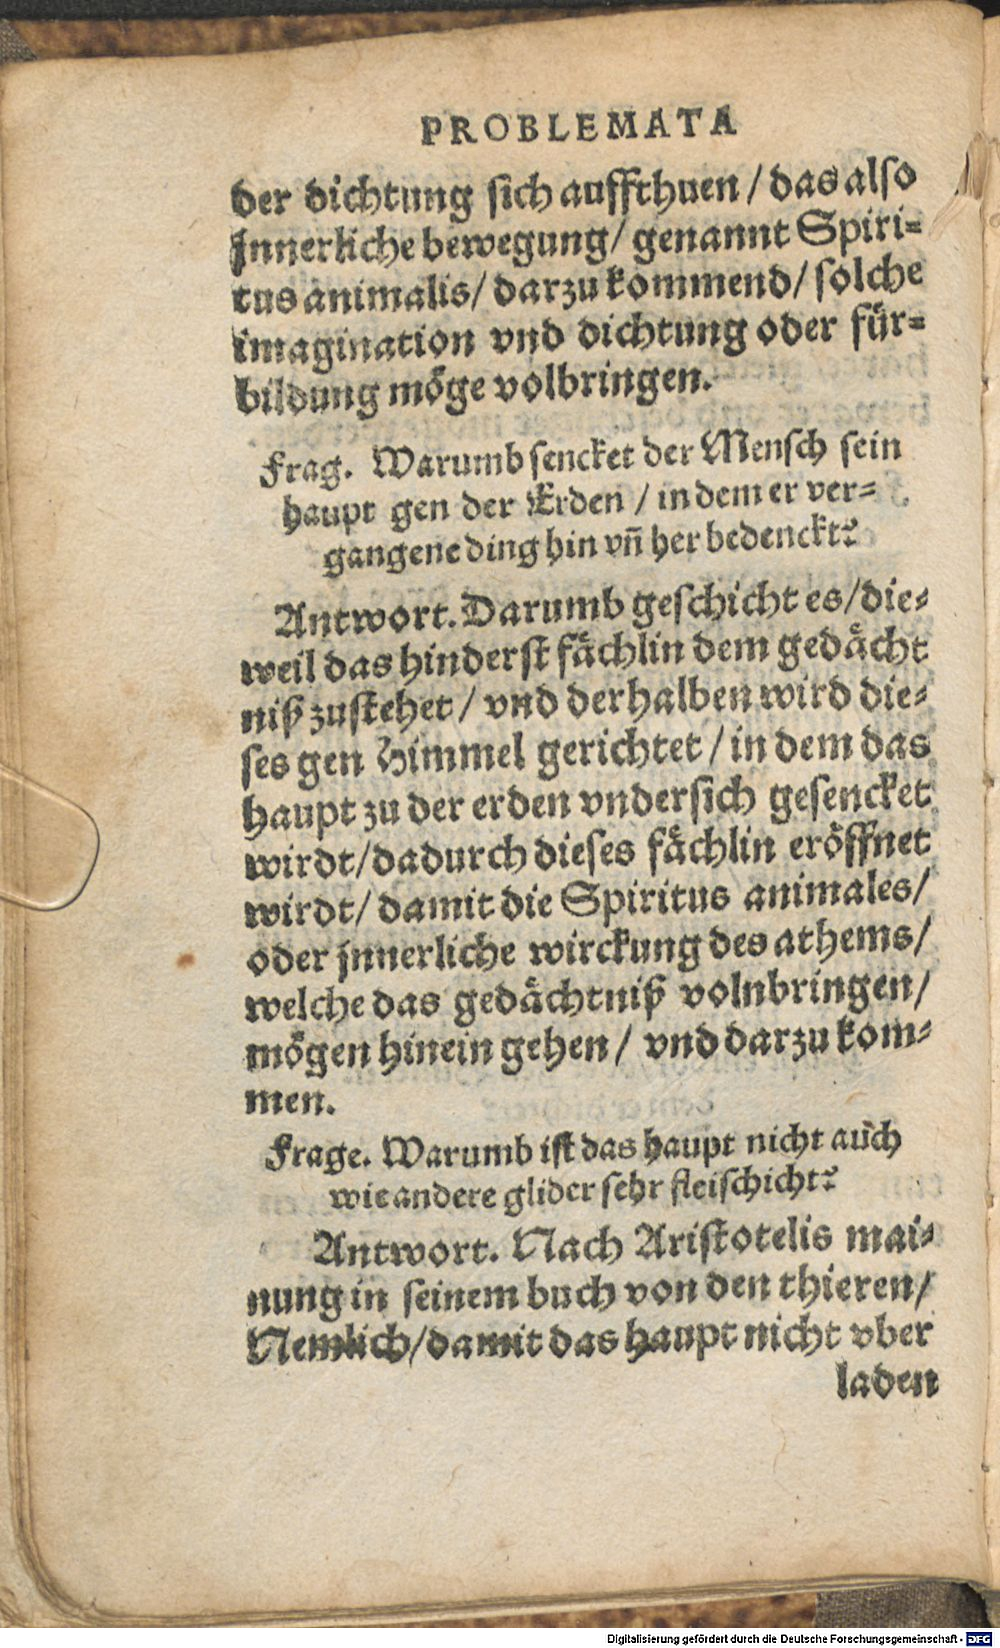 PROBLEMATA
der dichtung sich auffthuen / das also
Innerliche bewegung / genannt Spiri-
tus animalis / darzu kommend / solche
imagination vnd dichtung oder für-
bildung möge volbringen.
Frag. Warumb sencket der Mensch sein
haupt gen der Erden / in dem er ver-
gangene ding hin vñ her bedenckt?
Antwort. Darumb geschicht es / die-
weil das hinderst fächlin dem gedächt
niß zustehet / vnd derhalben wird die-
ses gen Himmel gerichtet / in dem das
haupt zu der erden vndersich gesencket
wirdt / dadurch dieses fächlin eröffnet
wirdt / damit die Spiritus animales /
oder jnnerliche wirckung des athems /
welche das gedächtniß volnbringen /
mögen hinein gehen / vnd darzu kom-
men.
Frage. Warumb ist das haupt nicht auch
wie andere glider sehr fleischicht?
Antwort. Nach Aristotelis mai-
nung in seinem buch von den thieren /
Nemlich / damit das haupt nicht vber
laden
Digitalisierung gefördert durch die Deutsche Forschungsgemeinschaft - DFG